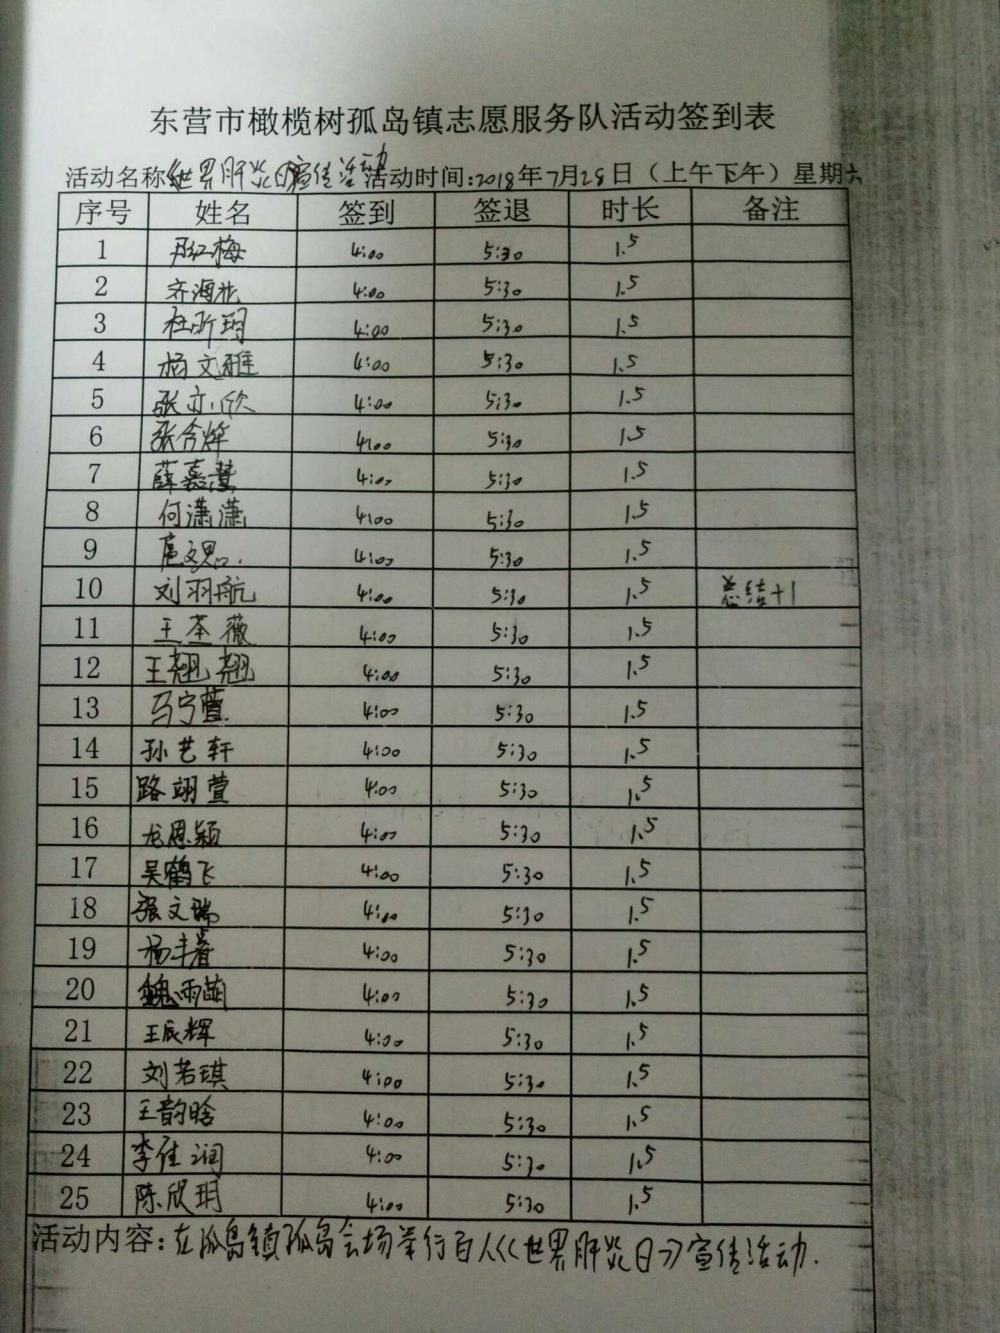 东营市橄榄树孤岛镇志愿服务队活动签到表
活动名称《世界肝炎日》宣传活动 活动时间:2018年7月28日（上午下午）星期六
序号 姓名 签到 签退 时长 备注
1 红梅 4:00 5:30 1.5
2 齐海北 4:00 5:30 1.5
3 杜昕玥 4:00 5:30 1.5
4 杨文雅 4:00 5:30 1.5
5 张亦欣 4:00 5:30 1.5
6 张含烨 4:00 5:30 1.5
7 薛嘉慧 4:00 5:30 1.5
8 何潇潇 4:00 5:30 1.5
9 4:00 5:30 1.5
10 刘羽航 4:00 5:30 1.5 总结+1
11 王荃薇 4:00 5:30 1.5
12 王翘翘 4:00 5:30 1.5
13 马宁萱 4:00 5:30 1.5
14 孙艺轩 4:00 5:30 1.5
15 路翊萱 4:00 5:30 1.5
16 龙恩颖 4:00 5:30 1.5
17 吴鹤飞 4:00 5:30 1.5
18 张文瑞 4:00 5:30 1.5
19 杨丰睿 4:00 5:30 1.5
20 魏雨萌 4:00 5:30 1.5
21 王辰辉 4:00 5:30 1.5
22 刘若琪 4:00 5:30 1.5
23 王韵晗 4:00 5:30 1.5
24 李佳润 4:00 5:30 1.5
25 陈欣玥 4:00 5:30 1.5
活动内容：在孤岛镇孤岛会场举行百人《世界肝炎日》宣传活动.